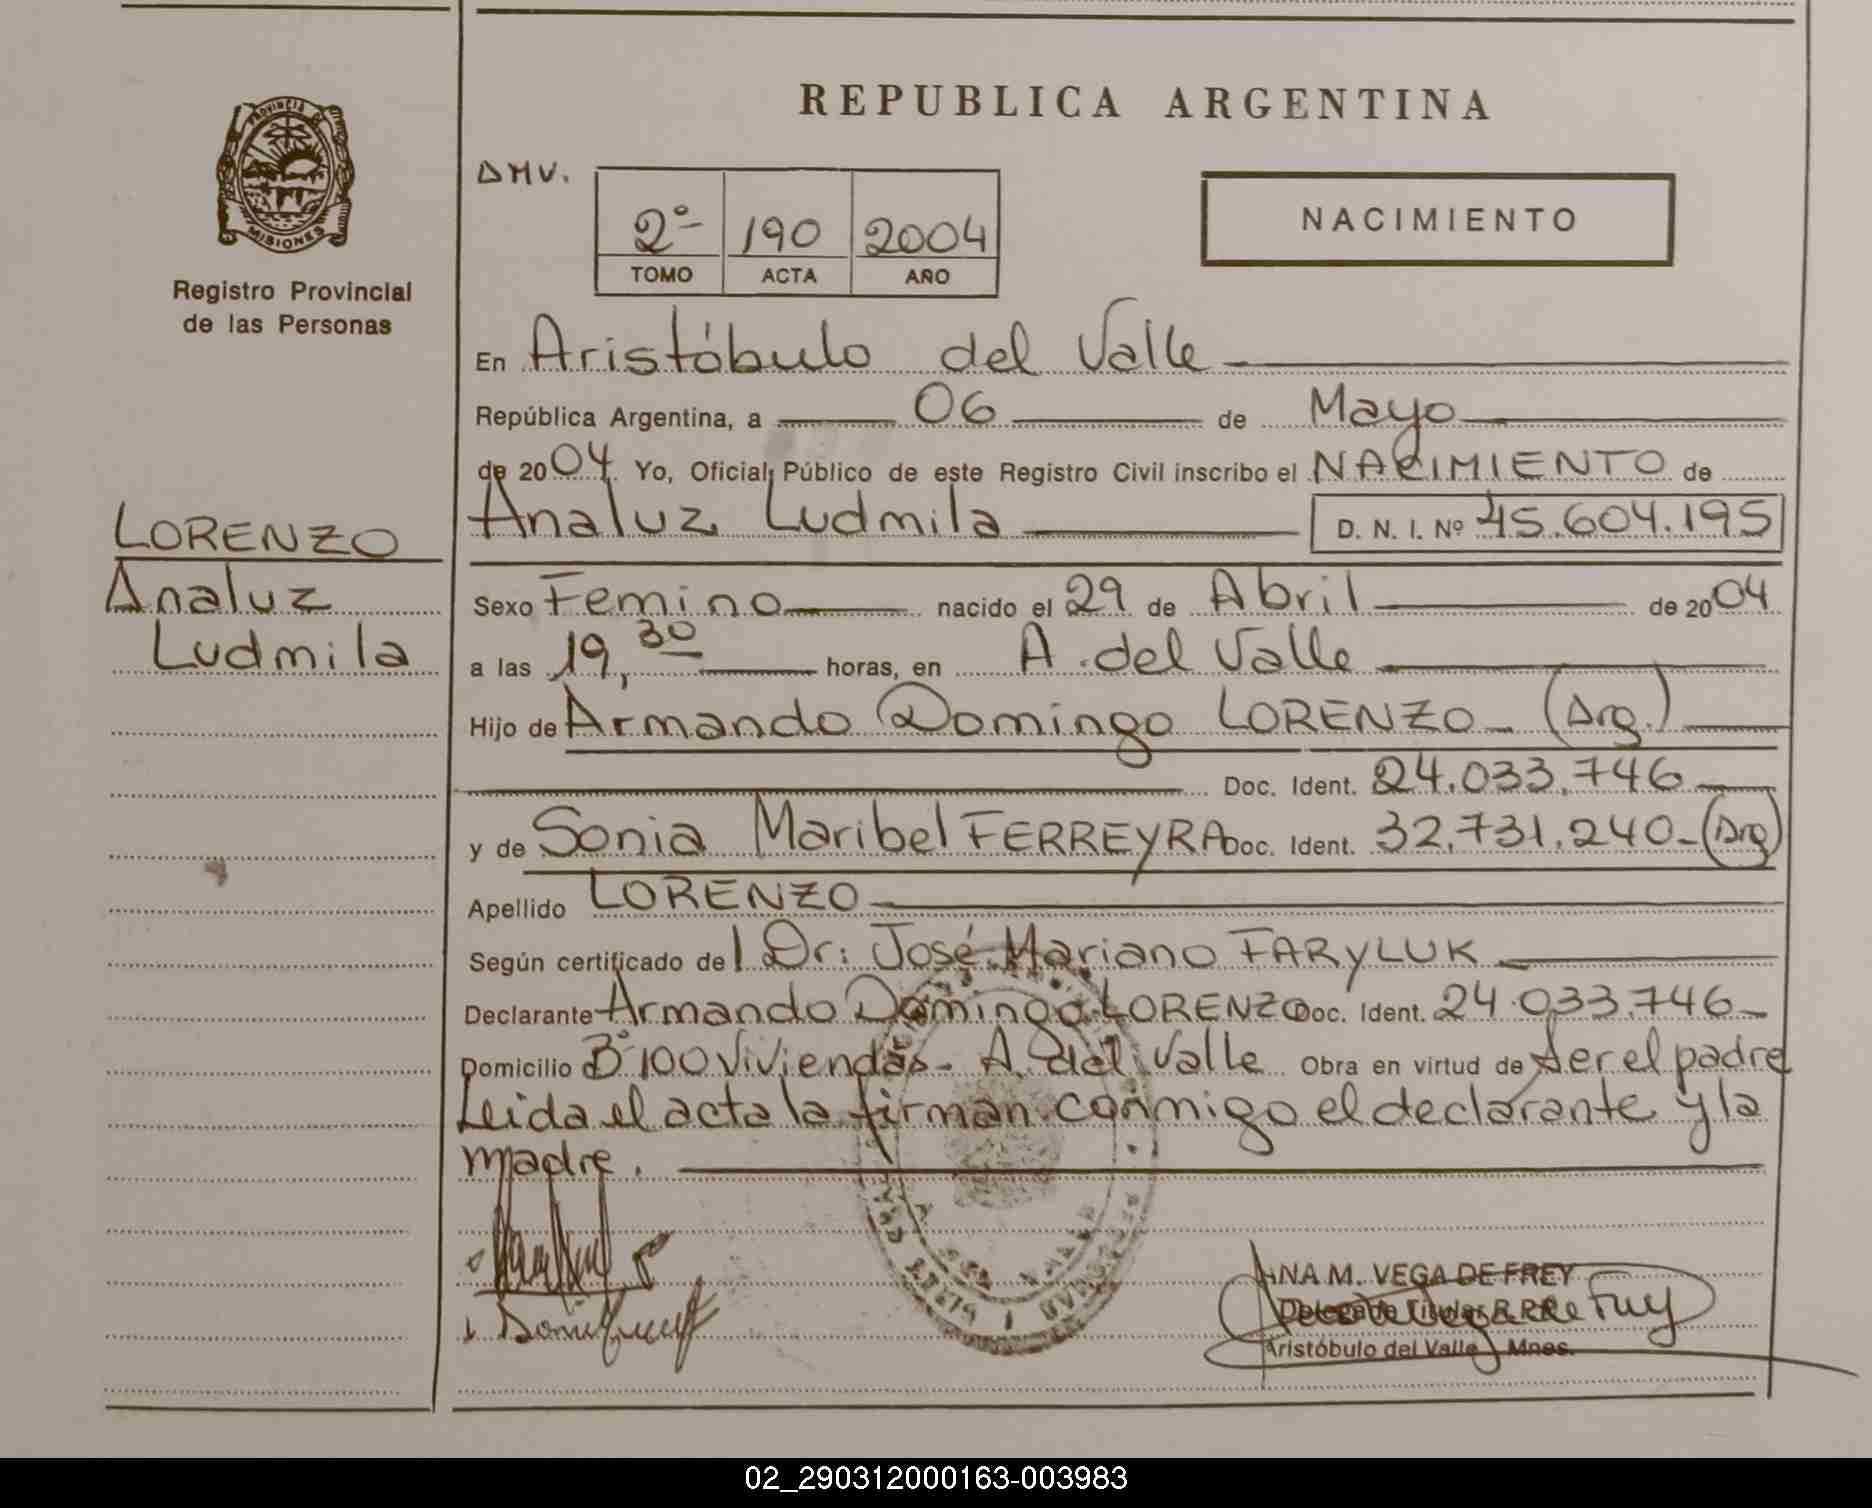 REPUBLICA ARGENTINA
PROVINCIA DE
MISIONES
Registro Provincial
de las Personas
DMV.
2º 190 2004
TOMO ACTA AÑO
NACIMIENTO
En Aristóbulo del Valle
República Argentina, a 06 de Mayo
de 2004. Yo, Oficial Público de este Registro Civil inscribo el NACIMIENTO de
Analuz Ludmila D. N. I. Nº 45.604.195
LORENZO
Analuz
Ludmila
Sexo Femino nacido el 29 de Abril de 2004
a las 19,30 horas, en A. del Valle
Hijo de Armando Domingo LORENZO (Arg.)
Doc. Ident. 24.033.746
y de Sonia Maribel FERREYRA Doc. Ident. 32.731.240 (Arg)
Apellido LORENZO
Según certificado del Dr: José Mariano FARYLUK
Declarante Armando Domingo LORENZO Doc. Ident. 24.033.746
Domicilio Bº 100 Viviendas - A. del Valle Obra en virtud de ser el padre
Leida el acta la firman conmigo el declarante y la
madre.
ANA M. VEGA DE FREY
Delegada Titular R.P.P.
Aristóbulo del Valle Mnes.
02_290312000163-003983